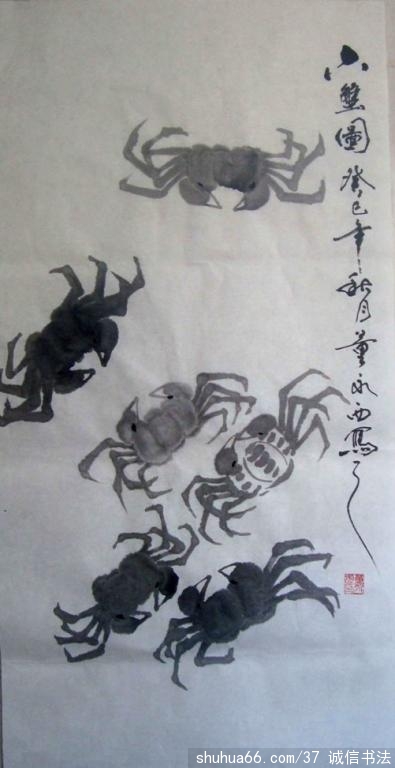 六蟹圖癸巳年秋月董永西寫之
shuhua66.com/37 诚信书法